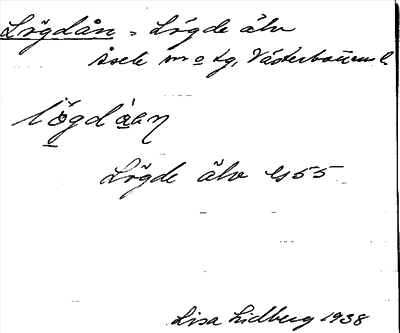 Lögdån = Lögde älv
Åsele sn o lg, Västerbottens l.
lögdåen
Lögde älv Gs55
Lisa Lidberg 1938